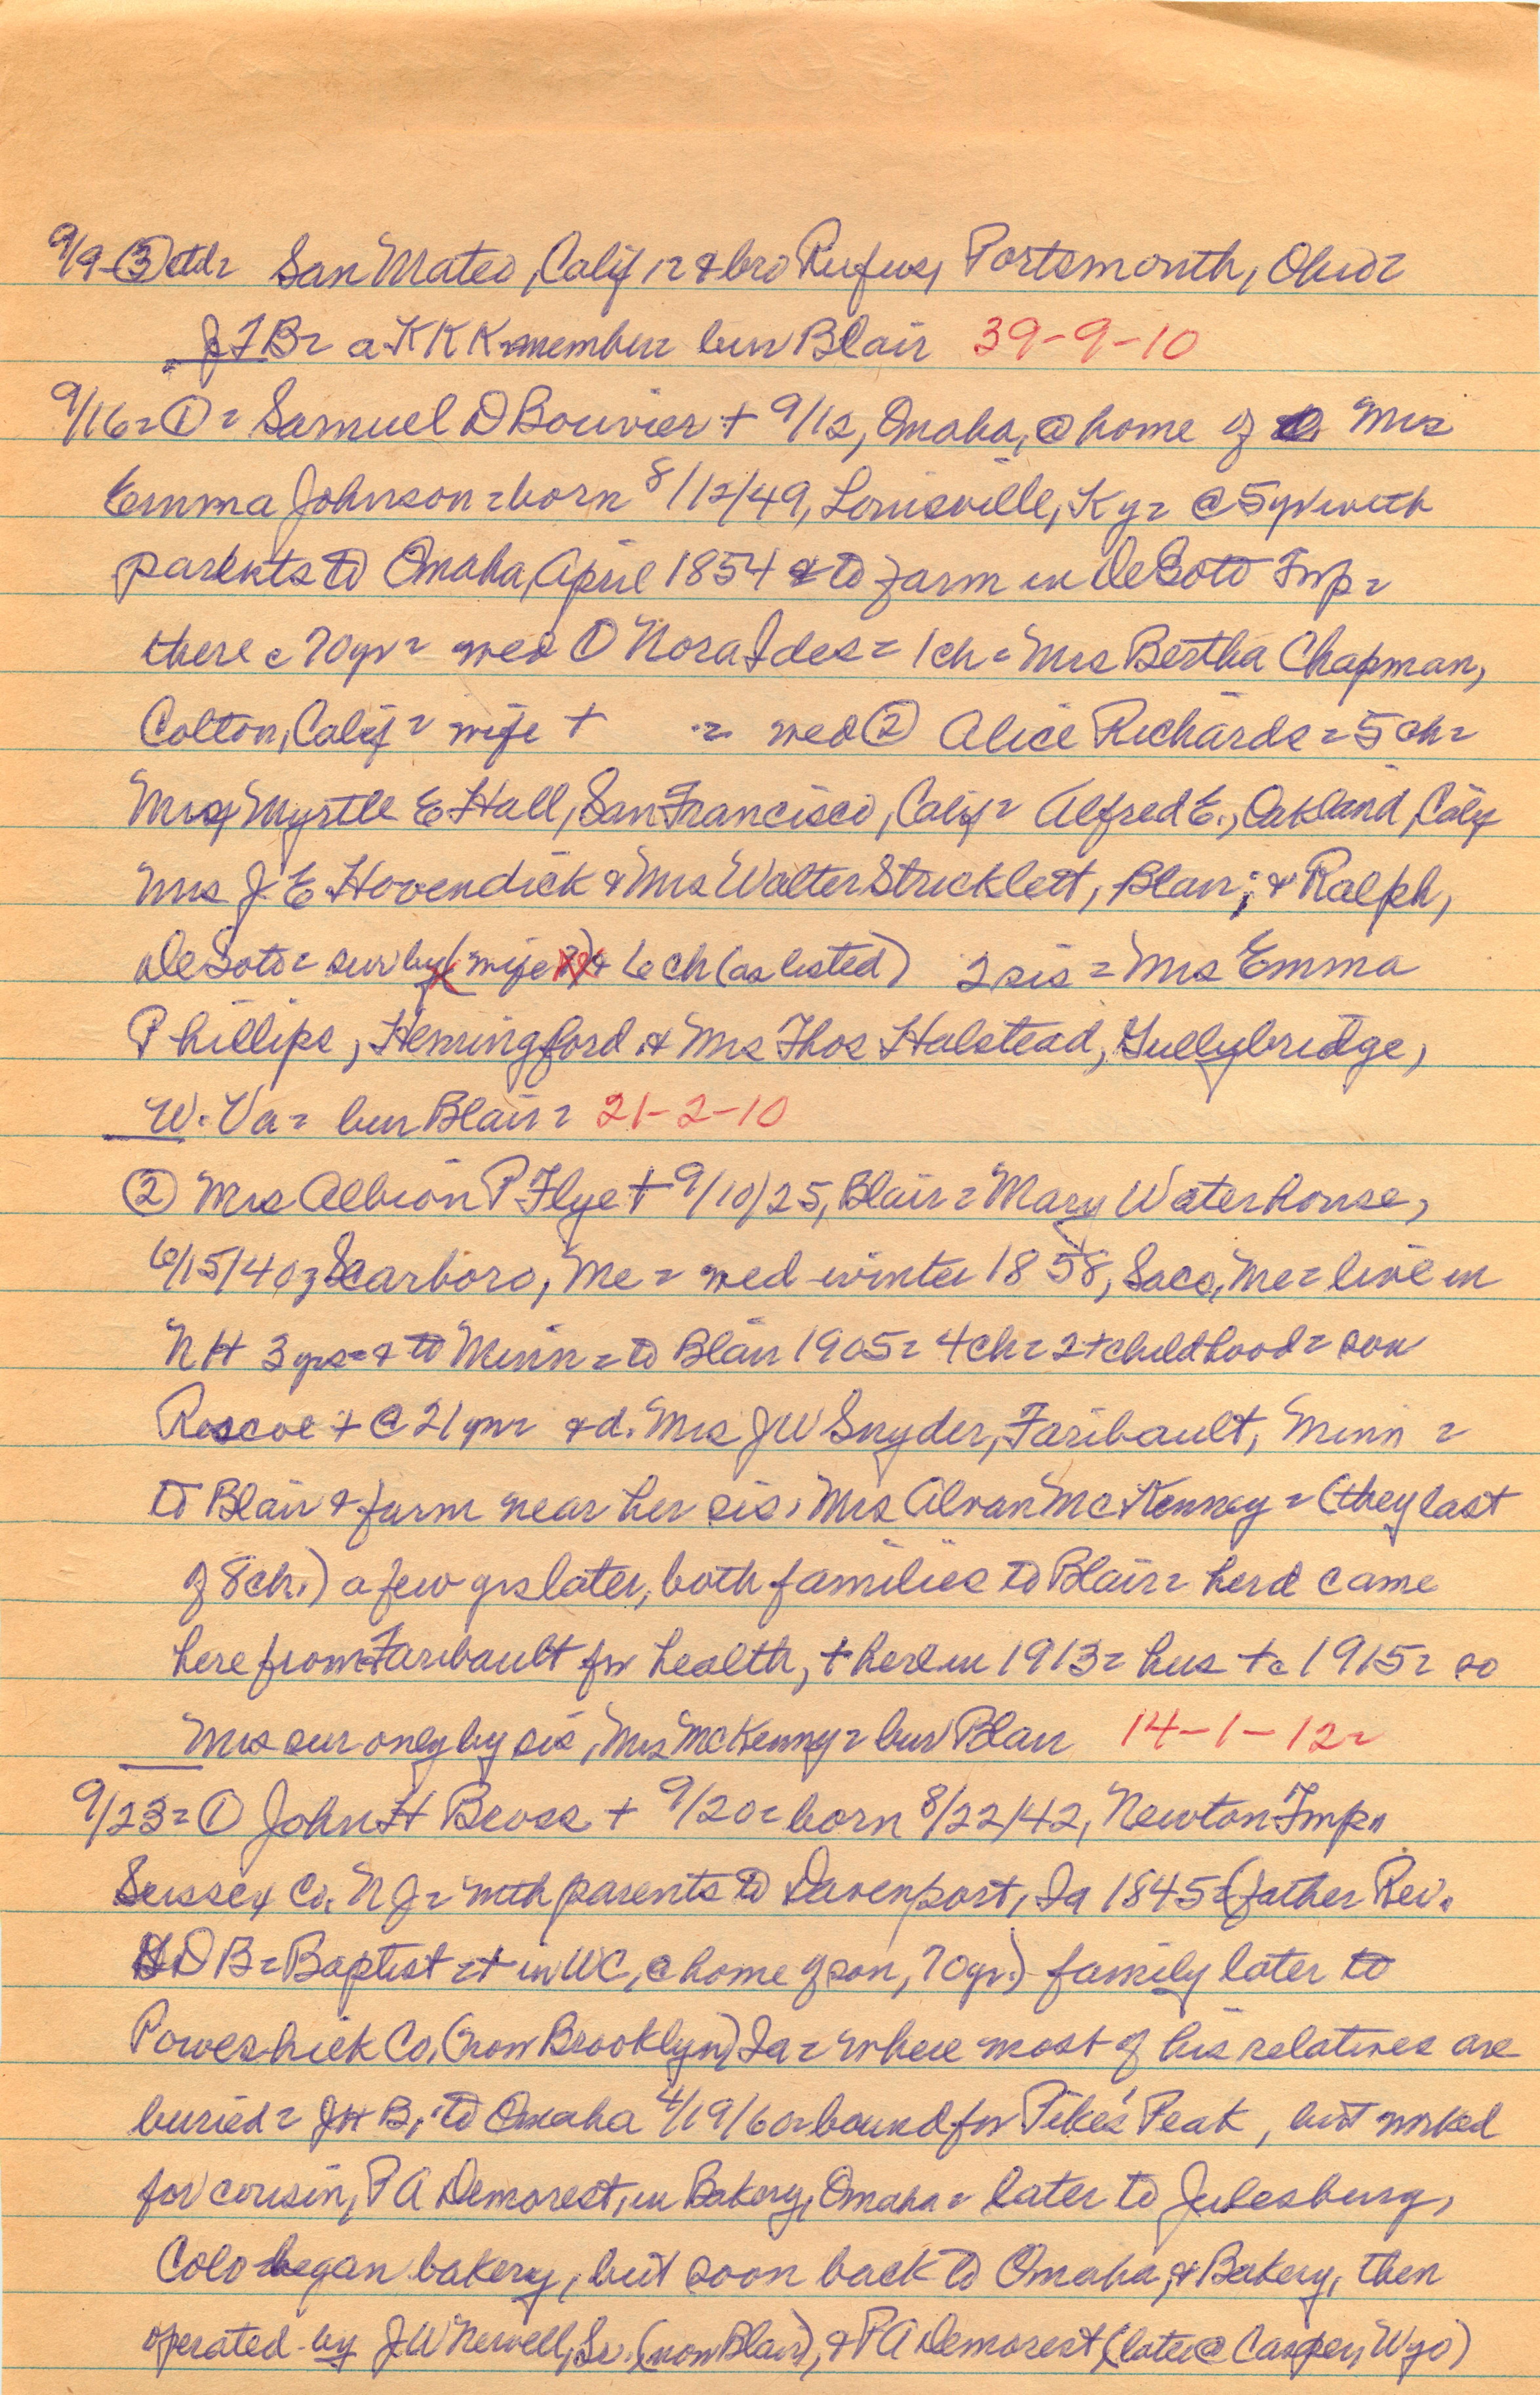 9/9-③ ctd= San Mateo, Calif,= & bro Rufus, Portsmouth, Ohio=
JFB= a KKK member= bur Blair 39-9-10
9/16=①= Samuel D Bouvier + 9/12, Omaha, @ home of Mrs
Emma Johnson=born 8/12/49, Louisville, Ky= @5yr with
parents to Omaha, April 1854 & to farm in DeSoto Twp=
there c 70yr= wed ① Nora Ides= 1ch= Mrs Bertha Chapman,
Colton, Calif= wife + = wed ② Alice Richards=5ch=
Mrs Myrtle E Hall, San Francisco, Calif= Alfred E., Oakland, Calif
Mrs J E Hovendick & Mrs Walter Stricklett, Blair; & Ralph,
DeSoto= sur by (wife ?) & 6 ch (as listed) 2 sis= Mrs Emma
Phillips, Hemingford, & Mrs Thos Halstead, Gullybridge,
W. Va= bur Blair= 21-2-10
② Mrs Albion P Flye + 9/10/25, Blair= Mary Waterhouse,
6/15/40, Scarboro, Me= wed winter 1858, Saco, Me= live in
NH 3 yrs= & to Minn= to Blair 1905= 4ch= 2+childhood= son
Roscoe + @ 21yr= & d. Mrs JW Snyder, Faribault, Minn=
to Blair & farm near her sis, Mrs Alvan McKenney= (they last
of 8ch.) a few yrs later, both families to Blair= her d came
here from Faribault for health, + here in 1913= hus + c 1915= so
Mrs sur only by sis, Mrs McKenny= bur Blair 14-1-12=
9/23=① John H Bross + 9/20= born 8/22/42, Newton Twp=
Sussex Co. NJ= with parents to Davenport, Ia 1845= (father Rev.
HD B= Baptist=+ in WC, @ home of son, 70yr.) family later to
Poweshiek Co, (now Brooklyn) Ia= where most of his relatives are
buried= JHB, to Omaha 4/19/60=bound for Pike's Peak, but worked
for cousin, PA Demorest, in Bakery, Omaha= later to Julesburg,
Colo began bakery, but soon back to Omaha, & Bakery, then
operated by JW Newell, Sr. (now Blair), & PA Demorest (later @ Casper, Wyo)